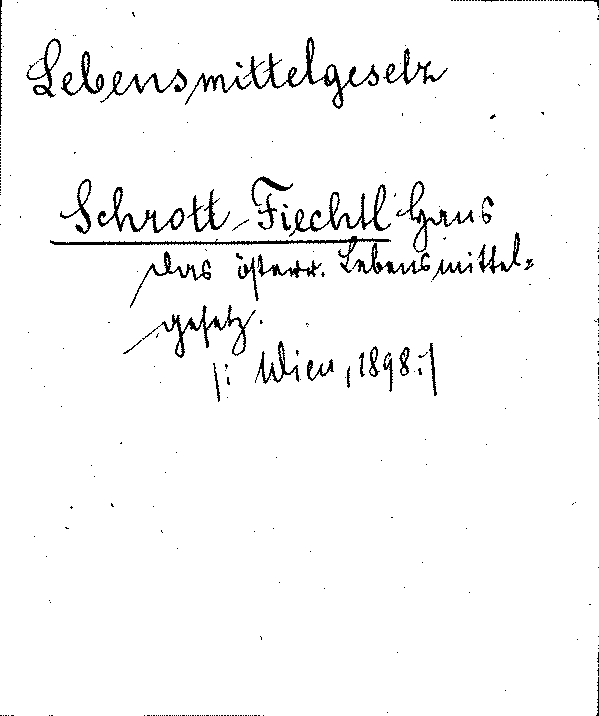 Lebensmittelgesetz
Schrott-Fiechtl Hans
Das österr. Lebensmittel-
gesetz.
/: Wien, 1898:/